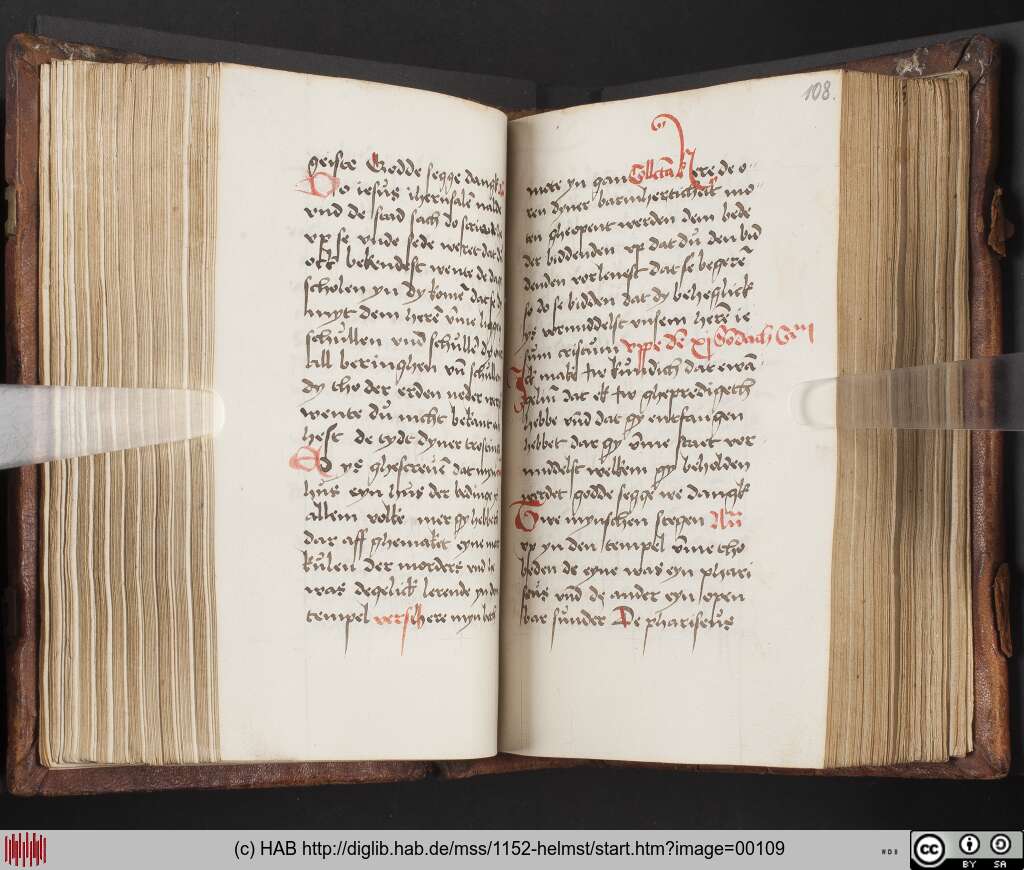 geiste Godde segge dangk
Do iesus iherusalem nalde
vnd de stad sach do screide
vp se vnde sede weret dat du
ock bekendest wente de dage
scholen yn dy komen dat se dy
myt dem here vmme liggen
schullen vnd schullen dy ouer
all beringhen vnd schullen
dy tho der erden neder
wente du nicht bekant en
hest de tydt dyner
Id ys ghescreuen dat myn
hus eyn hus der bedinge ys
allem volke mer gy hebbet
dar aff ghemaket eyne
kulen der morders vnd he
was degelick lerende yn dem
tempel vers here myn
108.
more yn gan Collecta k ere de o
ren dyner barmherticheit mo
ten gheopent werden dem bede
der biddenden vp dat du den bid
denden vorlenest dat se begeren
so do se bidden dat dy behegelick
ys vormiddelst vnsem heren ie
sum cristum vppe den xj Sondach
Ick make iw kundich dat ewan
gelium dat ek iw gheprediget
hebbe vnd dat gy entfangen
hebbet dar gy vmme staet vor
middelst welkem gy beholden
werdet godde segge we dangk
Twe mynschen stegen
vp yn den tempel vmme tho
beden de eyne was eyn phari
seus vnd de ander eyn open
bar sunder De phariseus
(c) HAB http://diglib.hab.de/mss/1152-helmst/start.htm?image=00109
WDB
cc BY SA